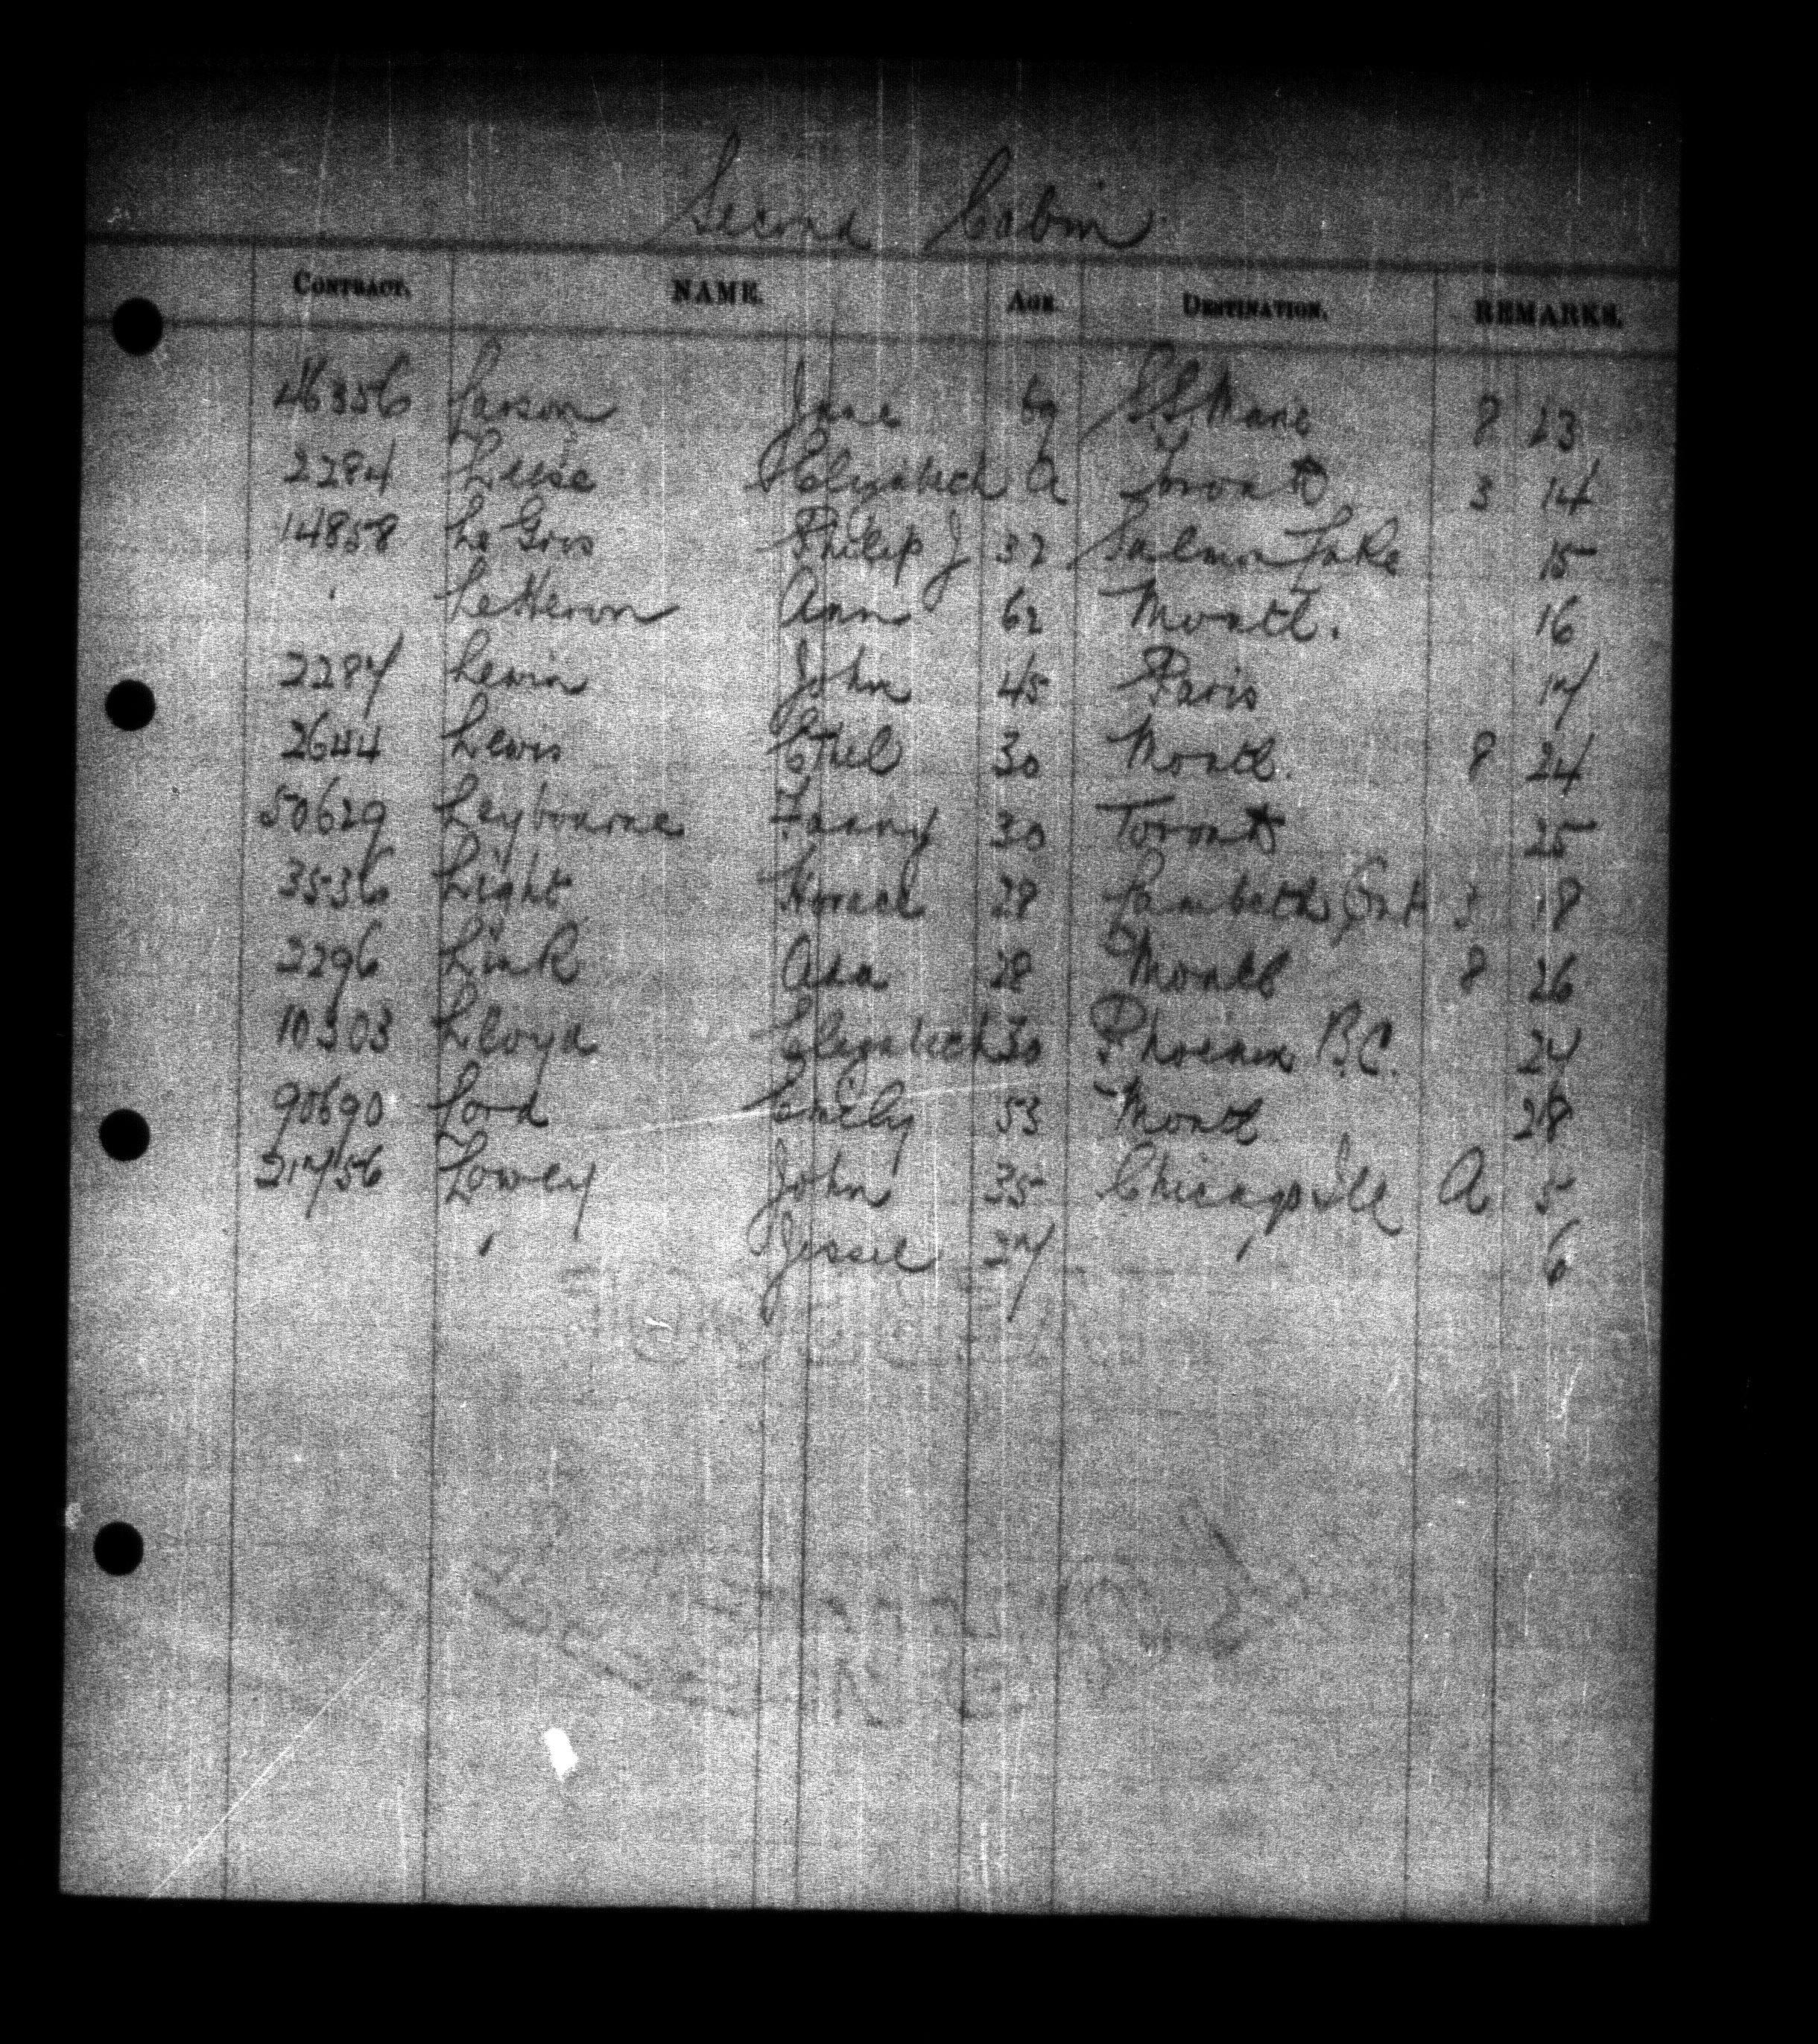 Second Cabin
CONTRACT. NAME. AGE. DESTINATION. REMARKS.
46356 Larson Jane 69 S.S Marie 8 23
2284 Leese Elizabeth A Toronto 3 14
14858 Le Gros Philip J 32 Salmon Lake 15
" LeHeron Ann 62 Montl. 16
2287 Lewin John 45 Paris 17
2644 Lewis Ethel 30 Montl. 8 24
50629 Leybourne Fanny 30 Toronto 25
3536 Light Horace 28 Lambeth Ont 3 18
2296 Link Ada 28 Montl 8 26
10303 Lloyd Elizabeth 30 Phoenix B.C. 27
90690 Lord Emily 53 Montl 28
21756 Lowey John 35 Chicago Ill A 5
" Jessie 27 " 6